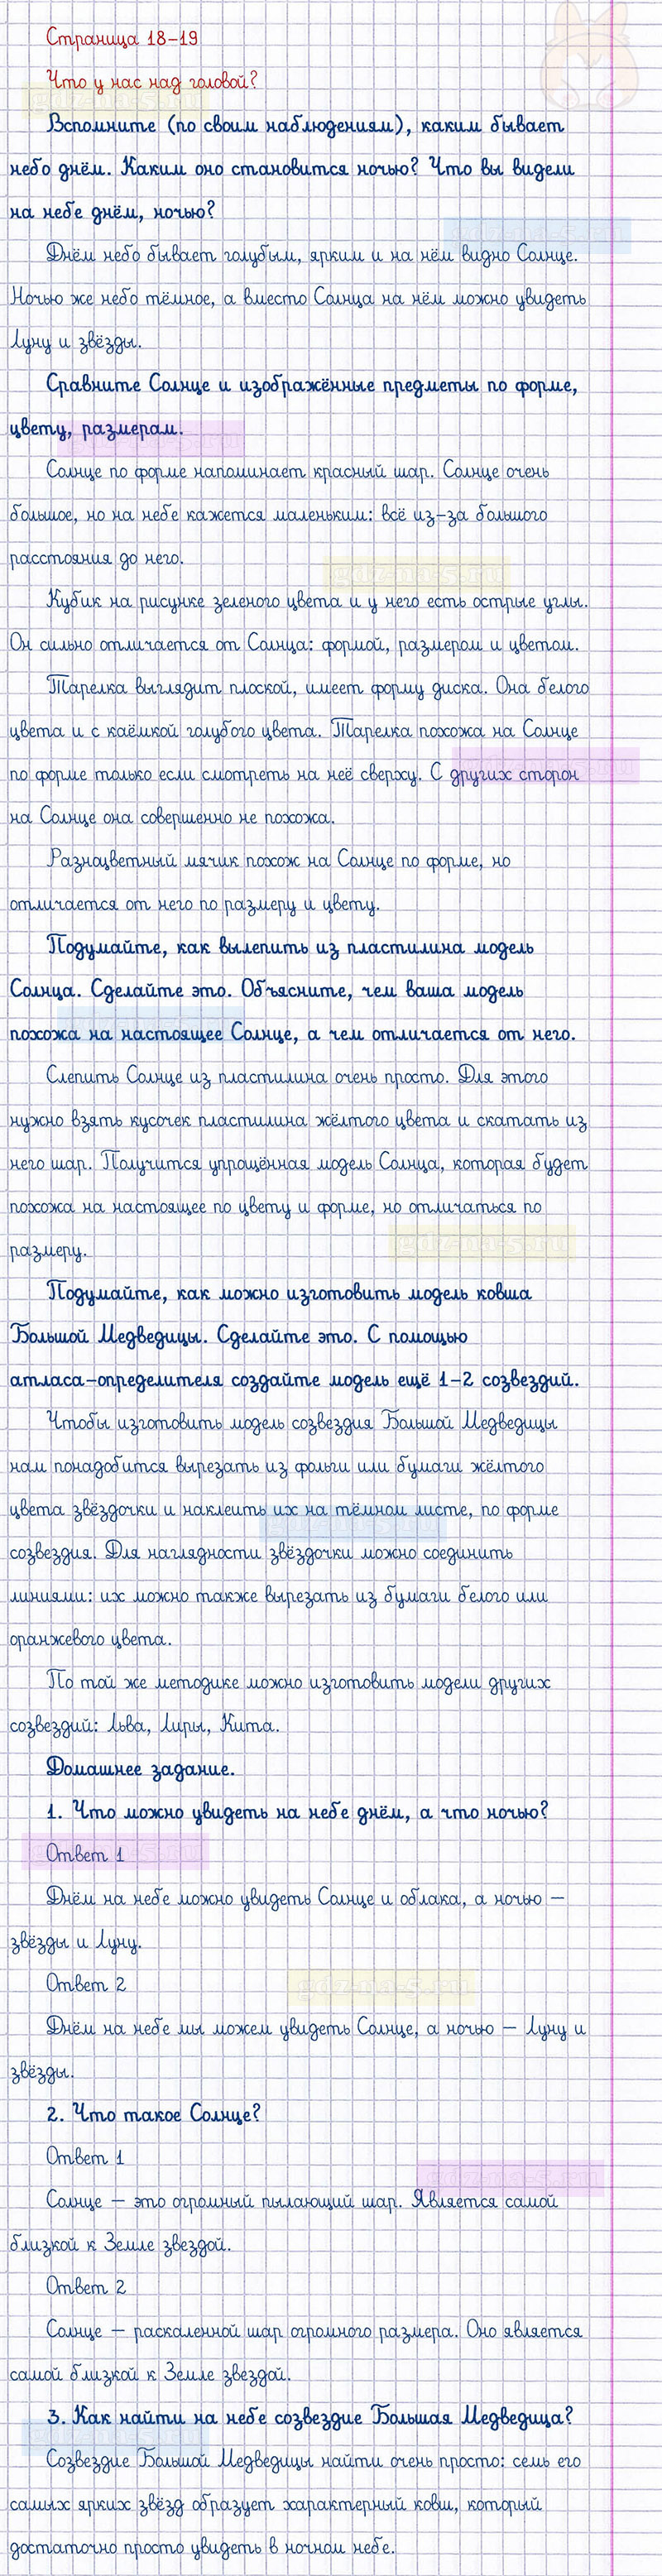 Страница 18-19
Что у нас над головой?
Вспомните (по своим наблюдениям), каким бывает
небо днём. Каким оно становится ночью? Что вы видели
на небе днём, ночью?
Днём небо бывает голубым, ярким и на нём видно Солнце.
Ночью же небо тёмное, а вместо Солнца на нём можно увидеть
Луну и звёзды.
Сравните Солнце и изображённые предметы по форме,
цвету, размерам.
Солнце по форме напоминает красный шар. Солнце очень
большое, но на небе кажется маленьким: всё из-за большого
расстояния до него.
gdz-na-5.ru
Кубик на рисунке зеленого цвета и у него есть острые углы.
Он сильно отличается от Солнца: формой, размером и цветом.
Тарелка выглядит плоской, имеет форму диска. Она белого
цвета и с каёмкой голубого цвета. Тарелка похожа на Солнце
по форме только если смотреть на неё сверху. С других сторон
на Солнце она совершенно не похожа.
Разноцветный мячик похож на Солнце по форме, но
отличается от него по размеру и цвету.
Подумайте, как вылепить из пластилина модель
Солнца. Сделайте это. Объясните, чем ваша модель
похожа на настоящее Солнце, а чем отличается от него.
Слепить Солнце из пластилина очень просто. Для этого
нужно взять кусочек пластилина жёлтого цвета и скатать из
него шар. Получится упрощённая модель Солнца, которая будет
похожа на настоящее по цвету и форме, но отличаться по
размеру.
gdz-na-5.ru
Подумайте, как можно изготовить модель ковша
Большой Медведицы. Сделайте это. С помощью
атласа-определителя создайте модель ещё 1-2 созвездий.
Чтобы изготовить модель созвездия Большой Медведицы
нам понадобится вырезать из фольги или бумаги жёлтого
цвета звёздочки и наклеить их на тёмном листе, по форме
созвездия. Для наглядности звёздочки можно соединить
линиями: их можно также вырезать из бумаги белого или
оранжевого цвета.
По той же методике можно изготовить модели других
созвездий: Льва, Лиры, Кита.
Домашнее задание.
1. Что можно увидеть на небе днём, а что ночью?
Ответ 1
Днём на небе можно увидеть Солнце и облака, а ночью –
звёзды и Луну.
Ответ 2
gdz-na-5.ru
Днём на небе мы можем увидеть Солнце, а ночью – Луну и
звёзды.
2. Что такое Солнце?
Ответ 1
Солнце – это огромный пылающий шар. Является самой
близкой к Земле звездой.
Ответ 2
Солнце – раскаленной шар огромного размера. Оно является
самой близкой к Земле звездой.
3. Как найти на небе созвездие Большая Медведица?
Созвездие Большой Медведицы найти очень просто: семь его
самых ярких звёзд образует характерный ковш, который
достаточно просто увидеть в ночном небе.